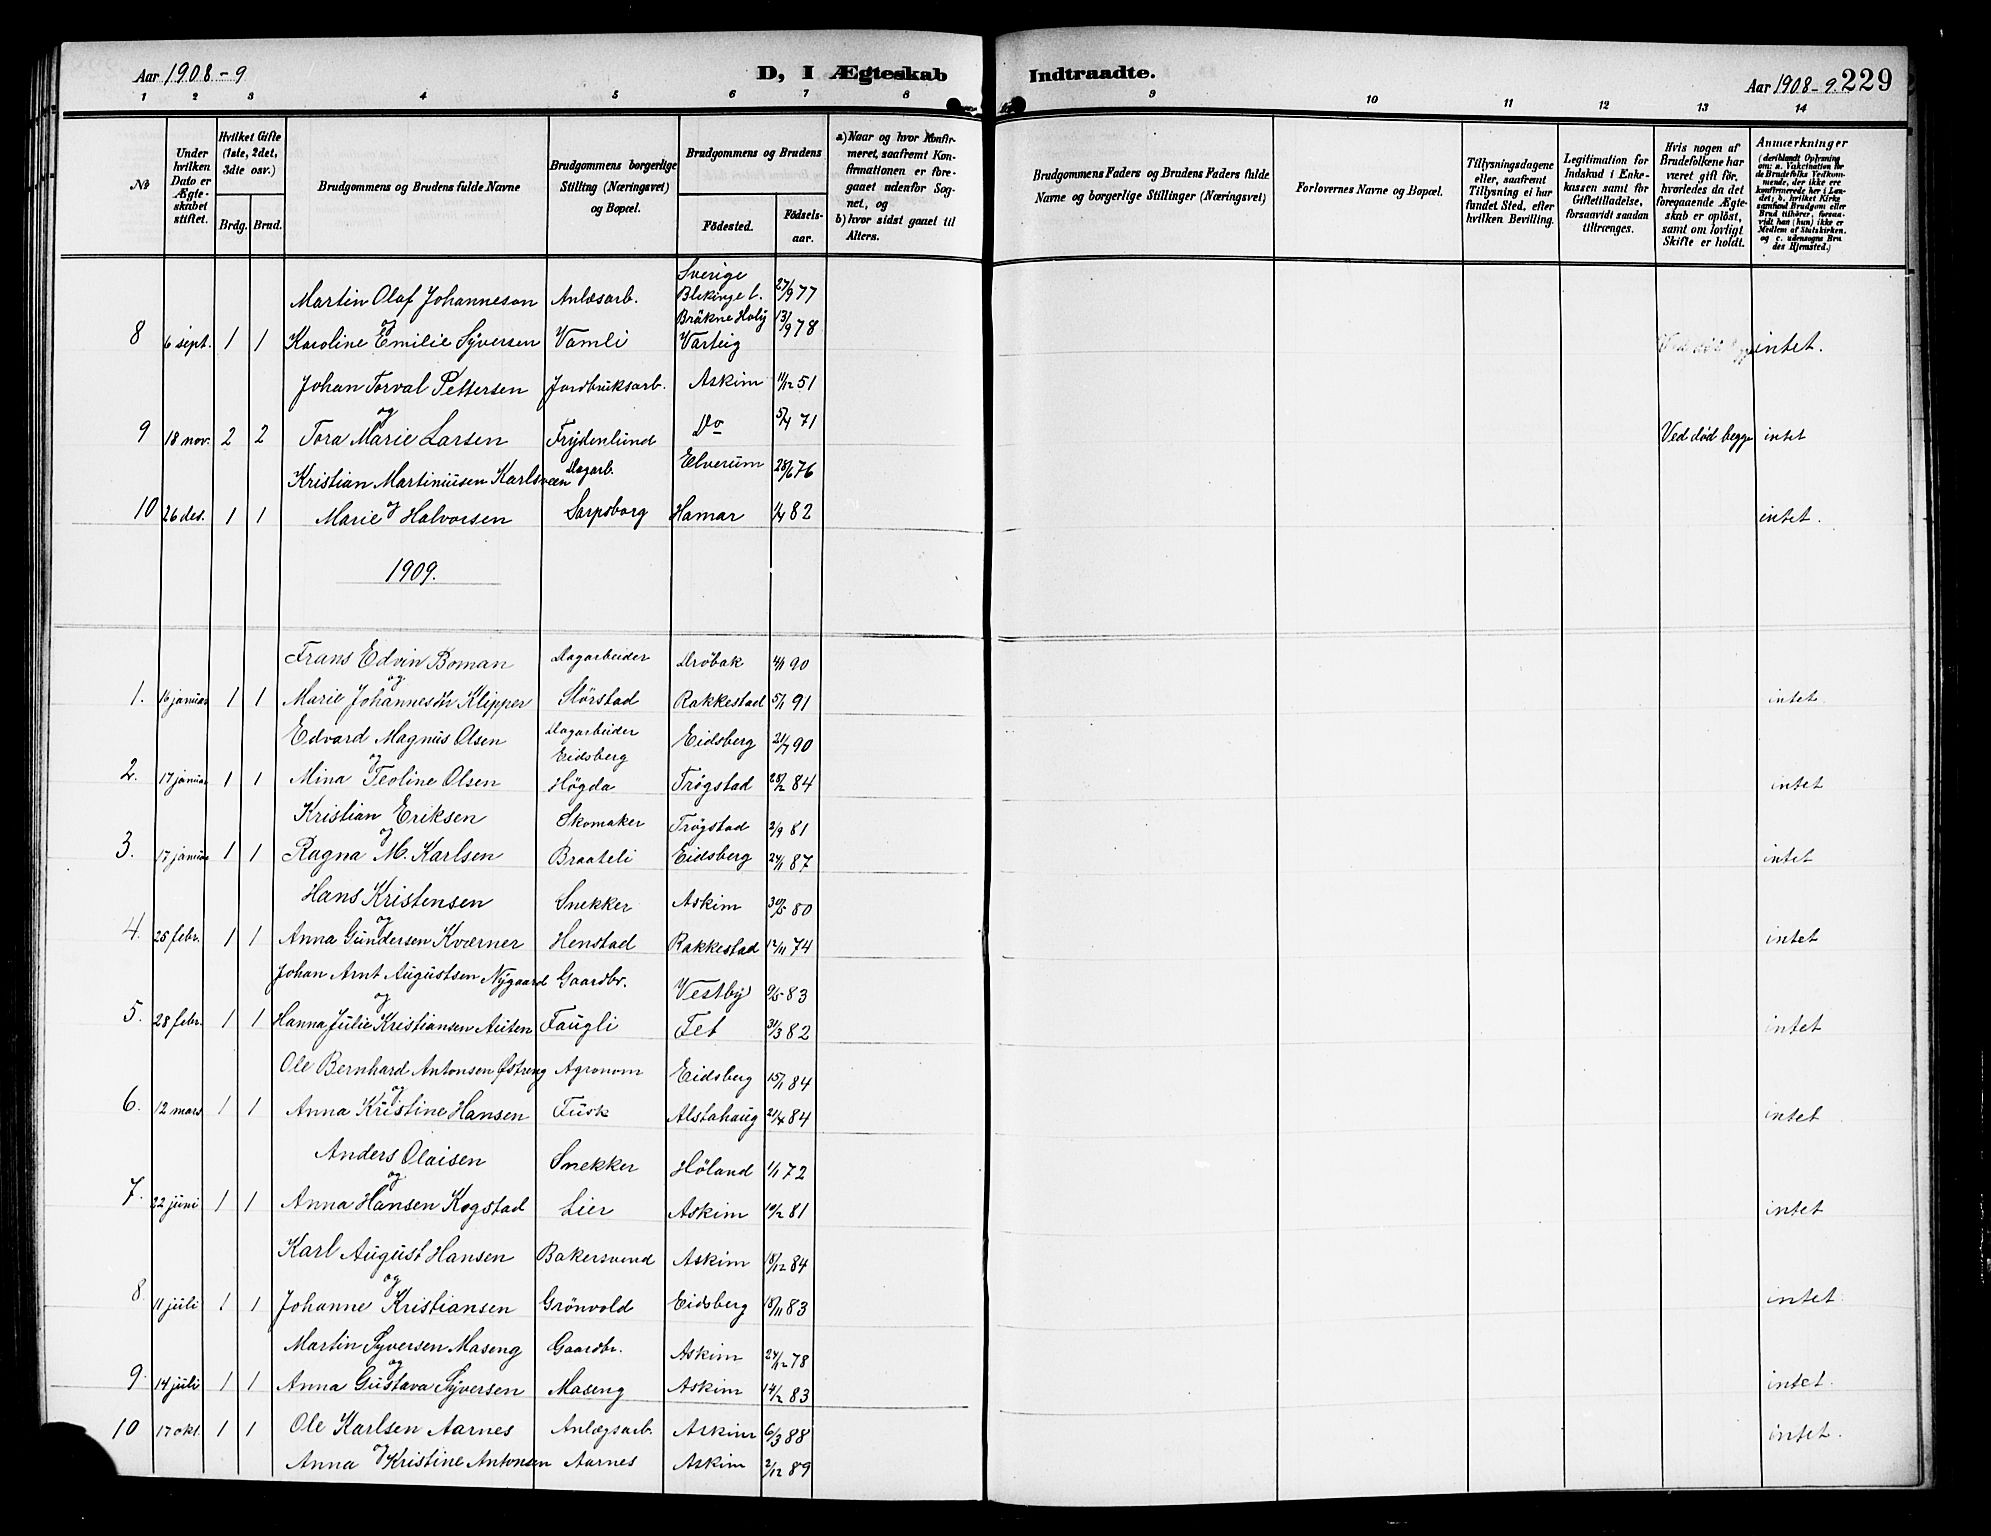 Aar 1908-9
D, I Ægteskab
Indtraadte.
Aar 1908-9. 229
1 2 3 4 5 6 7 8 9 10 11 12 13 14
No
Under hvilken Dato er Ægteskabet stiftet.
Hvilket Gifte (1ste, 2det, 3die osv.)
Brdg. Brud.
Brudgommens og Brudens fulde Navne
Brudgommens borgerlige Stilling (Næringsvei) og Bopæl.
Brudgommens og Brudens
Fødested.
Fødselsaar.
a) Naar og hvor Konfirmeret, saafremt Konfirmationen er foregaaet udenfor Sognet, og
b) hvor sidst gaaet til Alters.
Brudgommens Faders og Brudens Faders fulde Navne og borgerlige Stillinger (Næringsvei)
Forlovernes Navne og Bopæl.
Tillysningsdagene eller, saafremt Tillysning ei har fundet Sted, efter hvilken Bevilling.
Legitimation for Indskud i Enkekassen samt for Giftetilladelse, forsaavidt saadan tiltrænges.
Hvis nogen af Brudefolkene har været gift før, hvorledes da det foregaaende Ægteskab er opløst, samt om lovligt Skifte er holdt.
Anmærkninger
(deriblandt Oplysning om: a. Vakcination for de Brudefolks Vedkommende, der ikke ere konfirmerede her i Landet; b. hvilket Kirkesamfund Brudgom eller Brud tilhører, forsaavidt han (hun) ikke er Medlem af Statskirken. og c. udensogns Brudes Hjemsted.)
Martin Olaf Johanneson Anlæsarb. Sverige Blekinge l. Bräkne Hoby 27/9 77
og
8 6 sept. 1 1 Karoline Emilie Syversen Vamli Varteig 13/9 78 Ved død begge intet.
Johan Torval Pettersen Jordbruksarb. Askim 11/12 51
og
9 18 nov. 2 2 Tora Marie Larsen Frydenlund Do 5/4 71 Ved død begge intet
Kristian Martiniusen Karlsveen Dagarb. Elverum 28/6 76
og
10 26 des. 1 1 Marie Halvorsen Sarpsborg Hamar 1/4 82 intet.
1909.
Frans Edvin Boman Dagarbeider Drøbak 4/1 90
og
1. 16 januar 1 1 Marie Johannesdtr Klipper Størstad Rakkestad 5/1 91 intet.
Edvard Magnus Olsen Dagarbeider Eidsberg Eidsberg 21/7 90
og
2. 17 januar 1 1 Mina Teoline Olsen Høgda Trøgstad 28/2 84 intet
Kristian Eriksen Skomaker Trøgstad 2/9 81
og
3. 17 januar 1 1 Ragna M. Karlsen Braateli Eidsberg 24/1 87 intet
Hans Kristensen Snekker Askim 30/5 80
og
4. 25 febr. 1 1 Anna Gundersen Kværner Henstad Rakkestad 12/11 74 intet
Johan Arnt Augustsen Nygaard Gaardbr. Vestby 9/5 83
og
5. 28 febr. 1 1 Hanna Julie Kristiansen Auten Faugli Fet 31/3 82 intet
Ole Bernhard Antonsen Østreng Agronom Eidsberg 15/1 84
og
6. 12 mars 1 1 Anna Kristine Hansen Fusk Alstahaug 21/4 84 intet
Anders Olaisen Snekker Høland 1/1 72
og
7. 22 juni 1 1 Anna Hansen Kogstad Lier Askim 10/2 81 intet
Karl August Hansen Bakersvend Askim 18/12 84
og
8. 11 juli 1 1 Johanne Kristiansen Grønvold Eidsberg 18/11 83 intet.
Martin Syversen Maseng Gaardbr. Askim 24/12 78
og
9. 14 juli 1 1 Anna Gustava Syversen Maseng Askim 14/2 83 intet.
10 17 okt. 1 1 Ole Karlsen Aarnes Anlægsarb. Askim 6/3 88 intet.
og
Anna Kristine Antonsen Aarnes Askim 2/12 89